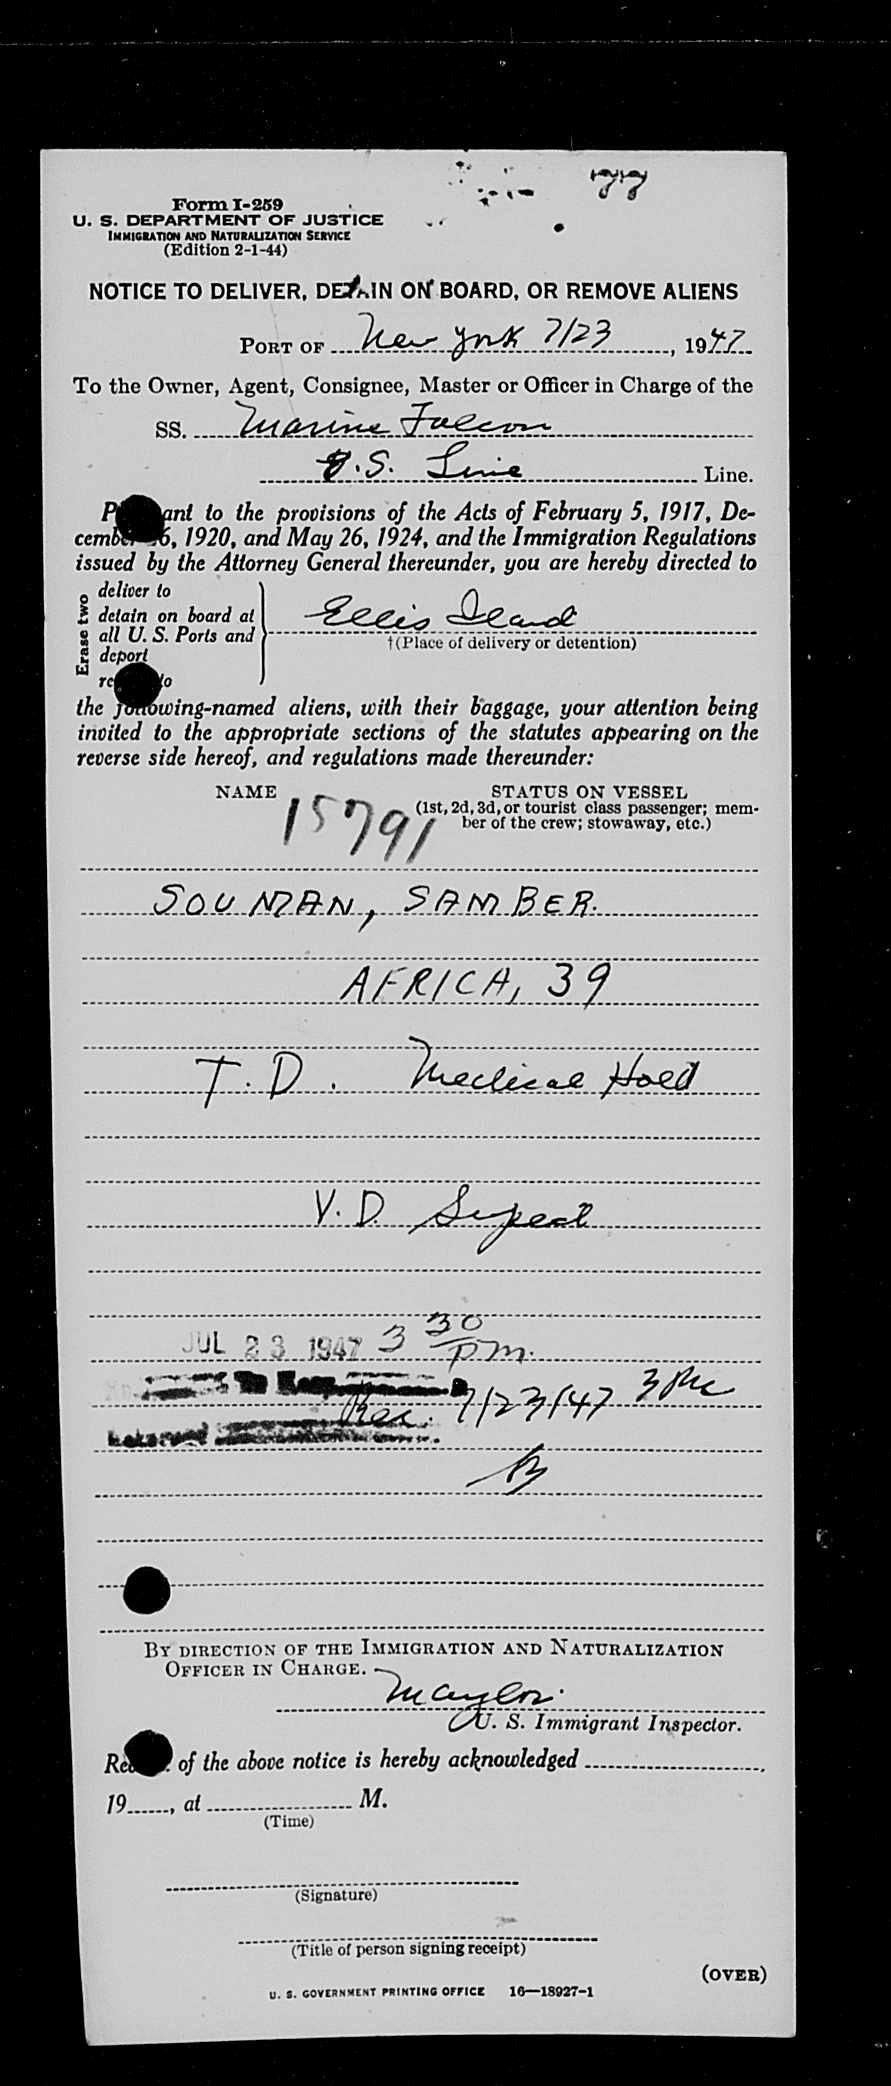 Form I-259
U. S. DEPARTMENT OF JUSTICE
IMMIGRATION AND NATURALIZATION SERVICE
(Edition 2-1-44)
NOTICE TO DELIVER, DETAIN ON BOARD, OR REMOVE ALIENS
PORT OF New York 7/23, 1947
To the Owner, Agent, Consignee, Master or Officer in Charge of the
SS. Marine Falcon
U.S. Line Line.
ant to the provisions of the Acts of February 5, 1917, De-
cember 6, 1920, and May 26, 1924, and the Immigration Regulations
issued by the Attorney General thereunder, you are hereby directed to
Erase two
deliver to
detain on board at
all U. S. Ports and
deport
to
Ellis Iland
†(Place of delivery or detention)
the following-named aliens, with their baggage, your attention being
invited to the appropriate sections of the statutes appearing on the
reverse side hereof, and regulations made thereunder:
NAME
STATUS ON VESSEL
(1st, 2d, 3d, or tourist class passenger; mem-
ber of the crew; stowaway, etc.)
15791
SOUMAN, SAMBER.
AFRICA, 39
T. D. Medical Hold
V. D. Supect
JUL 23 1947 3 30 pm.
Rec. 7/23/47 3 PM
By direction of the Immigration and Naturalization
Officer in Charge.
U. S. Immigrant Inspector.
of the above notice is hereby acknowledged
19, at M.
(Time)
(Signature)
(Title of person signing receipt)
(OVER)
U. S. GOVERNMENT PRINTING OFFICE 16—18927-1